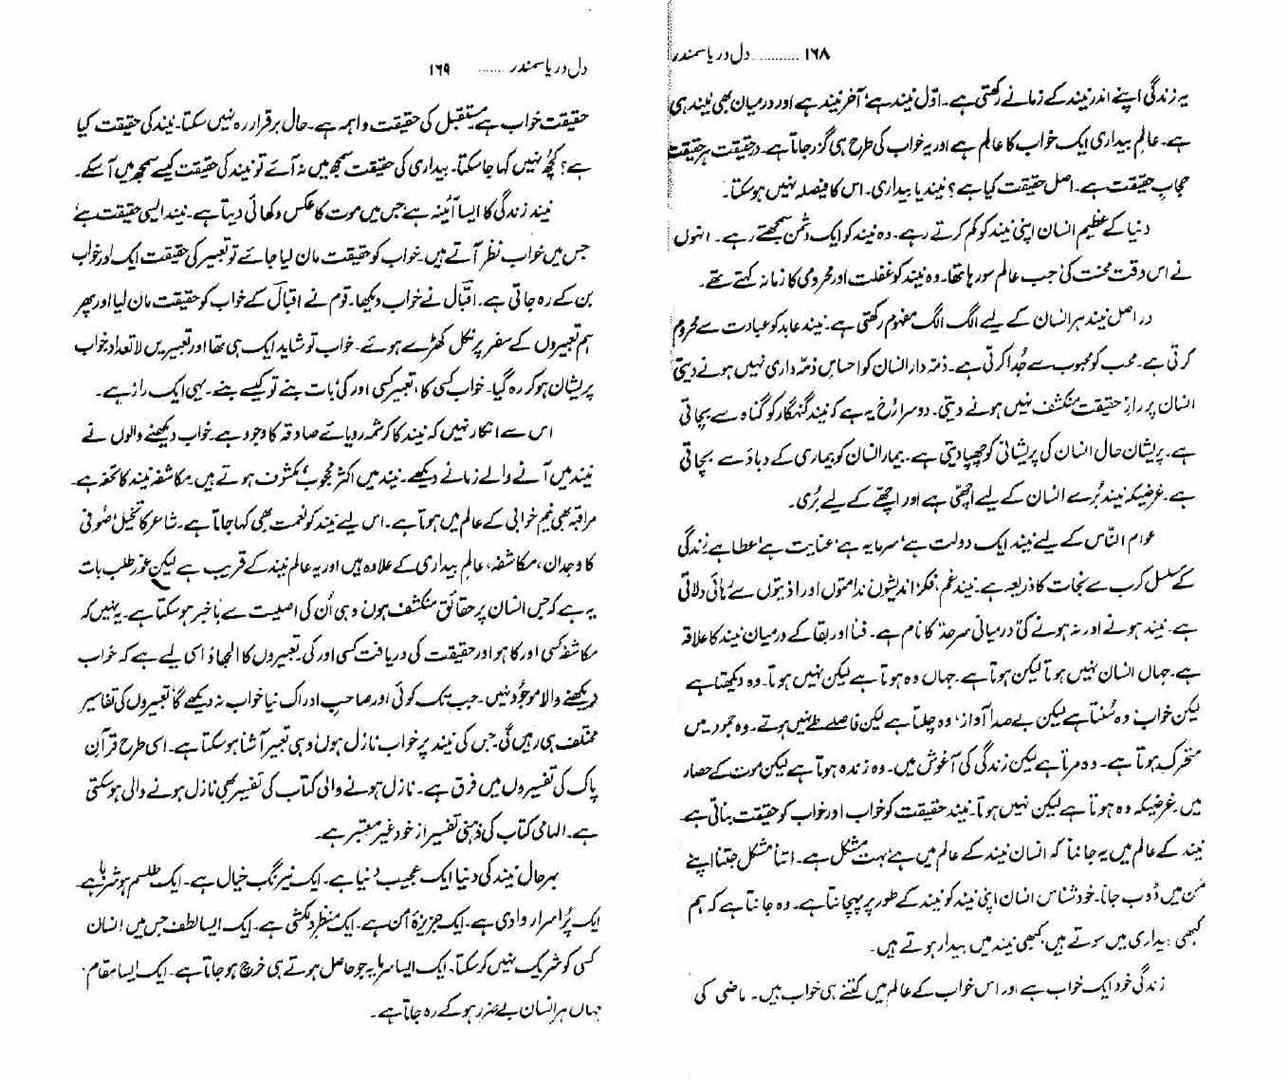 ۱۶۸ ........... دل دریا سمندر
یہ زندگی اپنے اندر نیند کے زمانے رکھتی ہے۔ اوّل نیند ہے، آخر نیند ہے اور درمیان بھی نیند ہی
ہے۔ عالمِ بیداری ایک خواب کا عالم ہے اور یہ خواب کی طرح ہی گزر جاتا ہے۔ درحقیقت ہر حقیقت
حجابِ حقیقت ہے۔ اصل حقیقت کیا ہے؟ نیند یا بیداری۔ اس کا فیصلہ نہیں ہو سکتا۔
دنیا کے عظیم انسان اپنی نیند کو کم کرتے رہے۔ وہ نیند کو ایک دشمن سمجھتے رہے۔ انہوں
نے اس وقت محنت کی جب عالم سو رہا تھا۔ وہ نیند کو غفلت اور محرومی کا زمانہ کہتے تھے۔
دراصل نیند ہر انسان کے لیے الگ الگ مفہوم رکھتی ہے۔ نیند عابد کو عبادت سے محروم
کرتی ہے۔ محب کو محبوب سے جُدا کرتی ہے۔ ذمّہ دار انسان کو احساسِ ذمّہ داری نہیں ہونے دیتی
انسان پر رازِ حقیقت منکشف نہیں ہونے دیتی۔ دوسرا رُخ یہ ہے کہ نیند گنہگار کو گناہ سے بچاتی
ہے۔ پریشان حال انسان کی پریشانی کو چھپا دیتی ہے۔ بیمار انسان کو بیماری کے دباؤ سے بچاتی
ہے۔ غرضیکہ نیند بُرے انسان کے لیے اچھی ہے اور اچھے کے لیے بُری۔
عوام النّاس کے لیے نیند ایک دولت ہے، سرمایہ ہے، عنایت ہے، عطا ہے زندگی
کے مسلسل کرب سے نجات کا ذریعہ ہے۔ نیند غم، فکر، اندیشوں، ندامتوں اور اذیتوں سے رہائی دلاتی
ہے۔ نیند ہونے اور نہ ہونے کی درمیانی سرحد کا نام ہے۔ فنا اور بقا کے درمیان نیند کا علاقہ
ہے۔ جہاں انسان نہیں ہوتا لیکن ہوتا ہے۔ جہاں وہ ہوتا ہے لیکن نہیں ہوتا۔ وہ دیکھتا ہے
لیکن خواب، وہ سُنتا ہے لیکن بے صدا آواز، وہ چلتا ہے لیکن فاصلے طے نہیں ہوتے۔ وہ جمود میں
متحرک ہوتا ہے۔ وہ مرتا ہے لیکن زندگی کی آغوش میں۔ وہ زندہ ہوتا ہے لیکن موت کے حصار
میں۔ غرضیکہ وہ ہوتا ہے لیکن نہیں ہوتا۔ نیند حقیقت کو خواب اور خواب کو حقیقت بناتی ہے
نیند کے عالم میں یہ جاننا کہ انسان نیند کے عالم میں ہے، بہت مشکل ہے۔ اتنا مشکل جتنا اپنے
من میں ڈوب جانا۔ خود شناس انسان اپنی نیند کو نیند کے طور پر پہچانتا ہے۔ وہ جانتا ہے کہ ہم
کبھی بیداری میں سوتے ہیں، کبھی نیند میں بیدار ہوتے ہیں۔
زندگی خود ایک خواب ہے اور اس خواب کے عالم میں کتنے ہی خواب ہیں۔ ماضی کی
دل دریا سمندر ...... ۱۶۹
حقیقت خواب ہے مستقبل کی حقیقت واہمہ ہے۔ حال برقرار رہ نہیں سکتا۔ نیند کی حقیقت کیا
ہے؟ کچھ نہیں کہا جا سکتا۔ بیداری کی حقیقت سمجھ میں نہ آئے تو نیند کی حقیقت کیسے سمجھ میں آسکے۔
نیند زندگی کا ایسا آئینہ ہے جس میں موت کا عکس دکھائی دیتا ہے۔ نیند ایسی حقیقت ہے
جس میں خواب نظر آتے ہیں۔ خواب کو حقیقت مان لیا جائے تو تعبیر کی حقیقت ایک اور خواب
بن کے رہ جاتی ہے۔ اقبالؔ نے خواب دیکھا۔ قوم نے اقبالؔ کے خواب کو حقیقت مان لیا اور پھر
ہم تعبیروں کے سفر پر نکل کھڑے ہوئے۔ خواب تو شاید ایک ہی تھا اور تعبیریں لاتعداد، خواب
پریشان ہو کر رہ گیا۔ خواب کسی کا، تعبیر کسی اور کی، بات بنے تو کیسے بنے۔ یہی ایک راز ہے۔
اس سے انکار نہیں کہ نیند کا کرشمہ رویائے صادقہ کا وجود ہے۔ خواب دیکھنے والوں نے
نیند میں آنے والے زمانے دیکھے۔ نیند میں اکثر محجوب، مکشوف ہوتے ہیں۔ مکاشفہ نیند کا تحفہ ہے۔
مراقبہ بھی نیم خوابی کے عالم میں ہوتا ہے۔ اس لیے نیند کو نعمت بھی کہا جاتا ہے۔ شاعر کا تخیل، صوفی
کا وجدان، مکاشفہ، عالمِ بیداری کے علاوہ ہیں اور یہ عالم نیند کے قریب ہے لیکن غور طلب بات
یہ ہے کہ جس انسان پر حقائق منکشف ہوں وہی اُن کی اصلیت سے باخبر ہو سکتا ہے۔ یہ نہیں کہ
مکاشفہ کسی اور کا ہو اور حقیقت کی دریافت کسی اور کی۔ تعبیروں کا الجھاؤ اسی لیے ہے کہ خواب
دیکھنے والا موجود نہیں۔ جب تک کوئی اور صاحبِ ادراک نیا خواب نہ دیکھے گا، تعبیروں کی تفاسیر
مختلف ہی رہیں گی۔ جس کی نیند پر خواب نازل ہوں، وہی تعبیر آشنا ہو سکتا ہے۔ اسی طرح قرآنِ
پاک کی تفسیروں میں فرق ہے۔ نازل ہونے والی کتاب کی تفسیر بھی نازل ہونے والی ہو سکتی
ہے۔ الہامی کتاب کی ذہنی تفسیر از خود غیر معتبر ہے۔
بہرحال نیند کی دنیا ایک عجیب دنیا ہے۔ ایک نیرنگِ خیال ہے۔ ایک طلسمِ ہوشربا ہے
ایک پُراسرار وادی ہے۔ ایک جزیرۂ امن ہے۔ ایک منظرِ دلکشی ہے۔ ایک ایسا لطف جس میں انسان
کسی کو شریک نہیں کر سکتا۔ ایک ایسا سرمایہ جو حاصل ہوتے ہی خرچ ہو جاتا ہے۔ ایک ایسا مقام
جہاں ہر انسان بے ضرر ہو کے رہ جاتا ہے۔